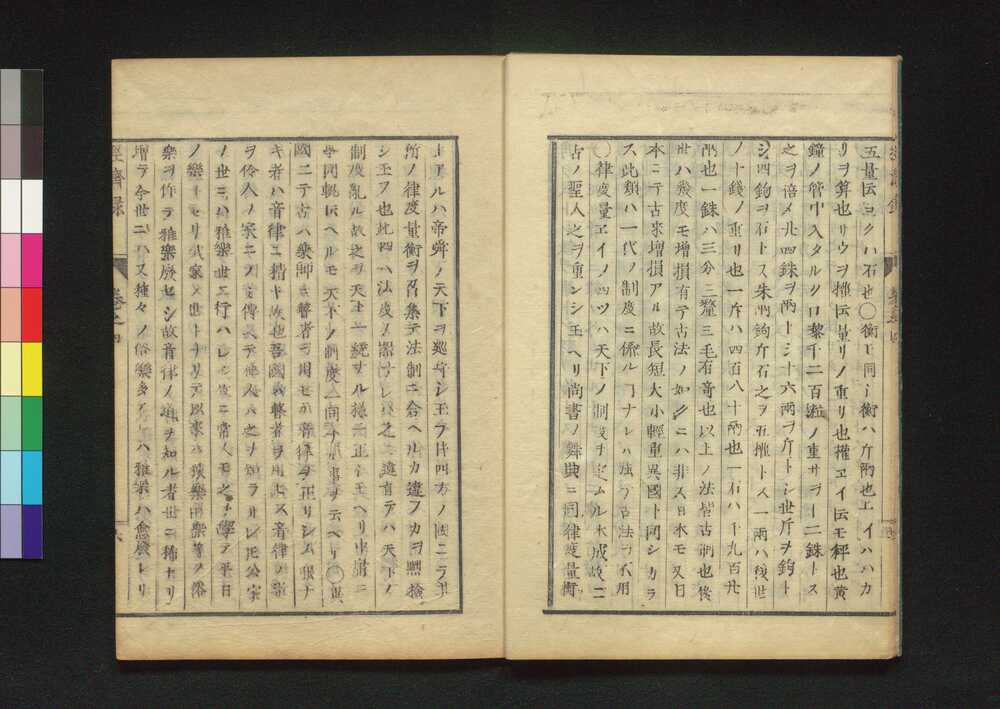 五量伝ヨクハ石也〇衡ト同シ衡ハ斤兩也エイハハカ
リヲ算也リウヲ権伝量リノ重リ也權エイ伝モ秤也黄
鐘ノ管中入タルクロ黍千二百粒ノ重サヲ十二銖トス
之ヲ倍メ廿四銖ヲ兩トシ十六兩ヲ斤トシ世斤ヲ鈞ト
シ四鈞ヲ石トス朱兩鈞斤石之ヲ五權ト人一兩ハ後世
ノ十錢ノ重リ也一斤ハ四百八十兩也一石ハ千九百廿
兩也一銖ハ三分三釐三毛有奇也以上ノ法皆古制也後
世ハ衡度モ增損有テ古法ノ如クニハ非ス日本モ又日
本ニテ古來增損アル故長短大小輕重異國ト同シカラ
ス此類ハ一代ノ制度ニ係ルヿナレハ強テ古法ヲ不用
〇律度量エイノ四ツハ天下ノ制度ヲ定ムル大成故ニ
古ノ聖人之ヲ重ンシ王ヘリ尚書ノ舜典ニ同律度量衡
トアルハ帝舜ノ天下ヲ巡守シ王フ時四方ノ國ニテ其
所ノ律度量衡ヲ召集テ法制ニ合ヘルカ違フカヲ點檢
シ王フ也此四ハ法度ノ器ナレハ之ニ違有テハ天下ノ
制度亂ル故之ヲ天下一統ナル樣ニ正シ王ヘリ中庸ニ
車同軌伝ヘルモ天下ノ制度一同ナル事ヲ云ヘリ〇異
國ニテ古ハ樂師ニ瞽者ヲ用セテ音律ヲ正リシム瞽ナ
キ者ハ音律ニ精キ故也吾國ハ瞽者ヲ用ヒス音律ノ樂
ヲ伶人ノ家ニノミ傳ヘテ他人ハ之ヲ知ラサレ圧公家
ノ世ニハ雅樂世ニ行ハレシ故ニ常人モ之ヲ學テ平日
ノ樂トセリ武家ノ世トナリテ以來ハ猿樂田樂等ノ俗
樂ヲ作ラ雅樂廢セシ故音律ノ道ヲ知ル者世ニ稀ナリ
增テ今世ニハ又種々ノ俗樂多ケレハ雅樂ハ愈廢レリ
經濟錄
卷之四